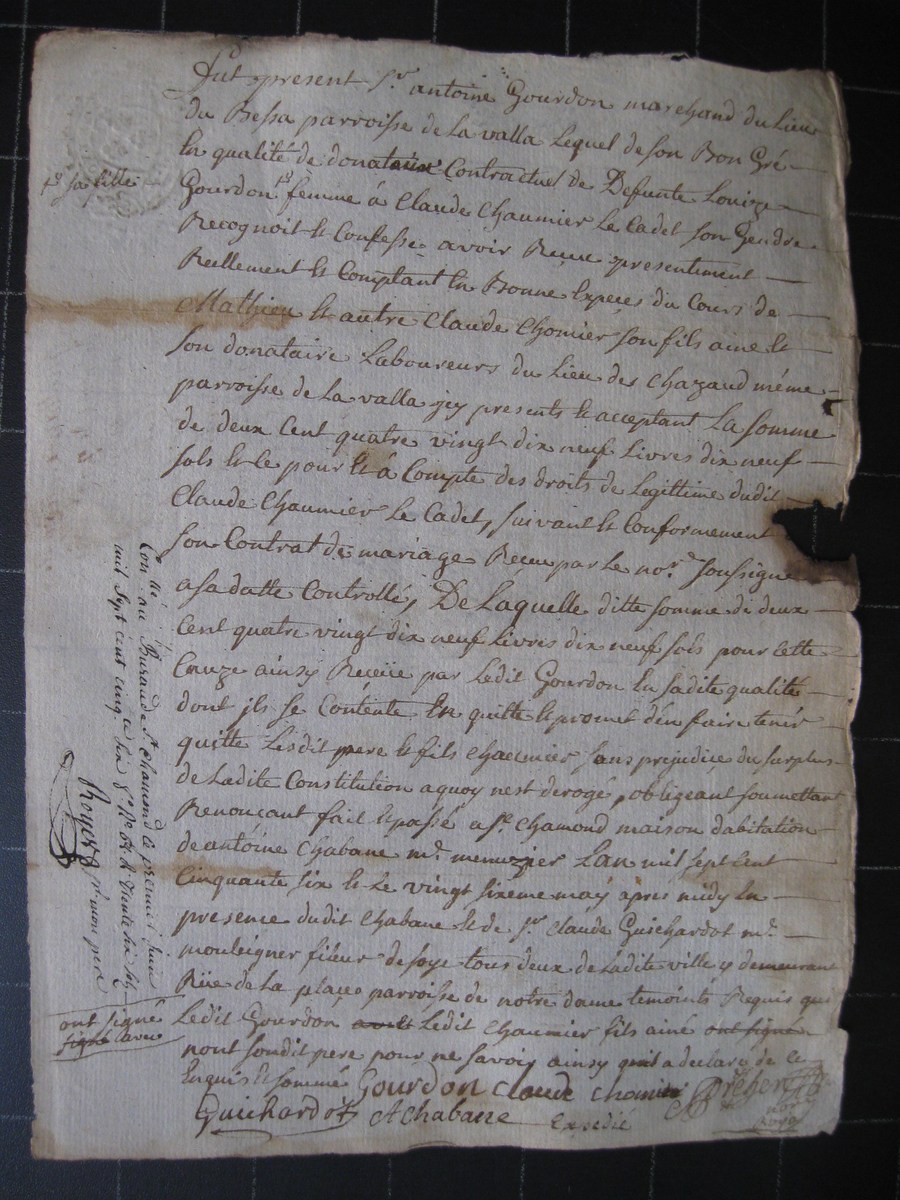 fut present Sr. antoine Gourdon marchand du Lieu
du Bessa parroisse de la valla Lequel de son Bon Gré
En qualité de donataire Contractuel de Deffunte Louize
ps. sa fille
Gourdon ps. femme à Claude Chaumier Le Cadet son Gendre
Recognoit et Confesse avoir Reçue presentiment
Reellement et Comptant En Bonne Espeçes du Cours de
Mathieu et autre Claude Chomier son fils ainé et
son donataire Laboureurs du Lieu des Chazaud méme
parroisse de La valla jcy presents et acceptant La somme
de deux Cent quatre vingt dix neuf Livres dix neuf
sols et Ce pour et à Compte des droits de Legittime dudit
Claude Chaumier Le Cadet, suivant et Conformement
son Contrat de mariage Reçeu par Le nore. soussigné
a sa datte Controllé, De Laquelle ditte somme de deux
Cent quatre vingt dix neuf Livres dix neuf sols pour cette
Cauze ainsy Reçeüe par Ledit Gourdon En sadite qualité
dont jls se Contente En quitte et promet d'en faire tenir
quitte Lesdit pere et fils Chaumier sans prejudice du surplus
de Ladite Constitution a quoy nest derogé, obligeant soumettant
Renonçant fait et passé a St. Chamond maison dabitation
de antoine Chabane md. menuzier Lan mil sept Cent
Cinquante six et Le vingt sixeme may apres midy En
presence dudit Chabane et de sr. Claude Guichardot md.
mouleigner fileur de soye tous deux de Ladite ville y demeurant
Rüe de La plaçe parroisse de notre dame temoints Requis que
Ledit Gourdon Ledit Chaumier fils ainé ont signé
ont signé
nont sondit pere pour ne savoir ainsy quil a declaré de Ce
Enquis et sommé Gourdon Claude Chomier
Guichardot AChabane Expedié
Con. né au Buraud de St. chamond le premier juin
mil sept cent cinq. te six
Royer pr. mon pere